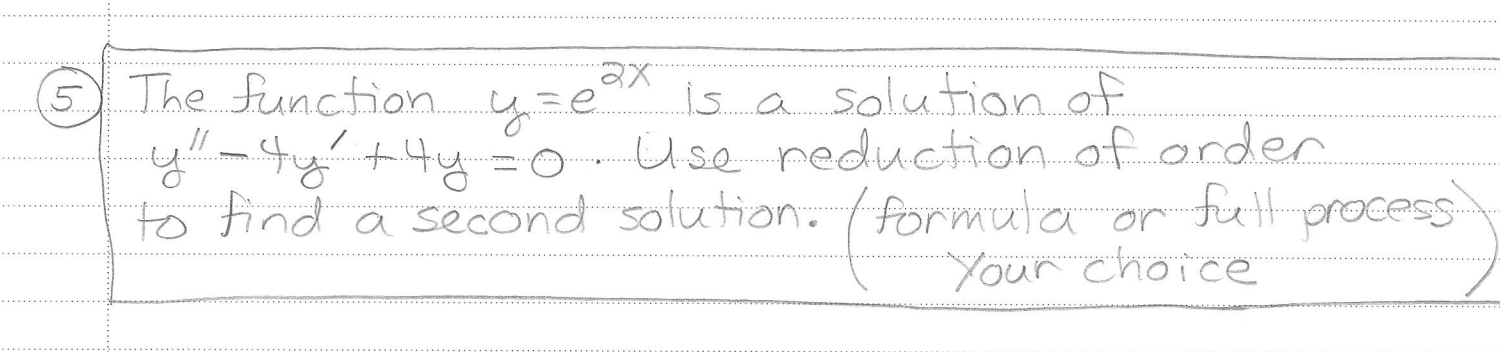 5 The function y=e^2x is a solution of
y''-4y'+4y=0. Use reduction of order
to find a second solution. (formula or full process
Your choice)